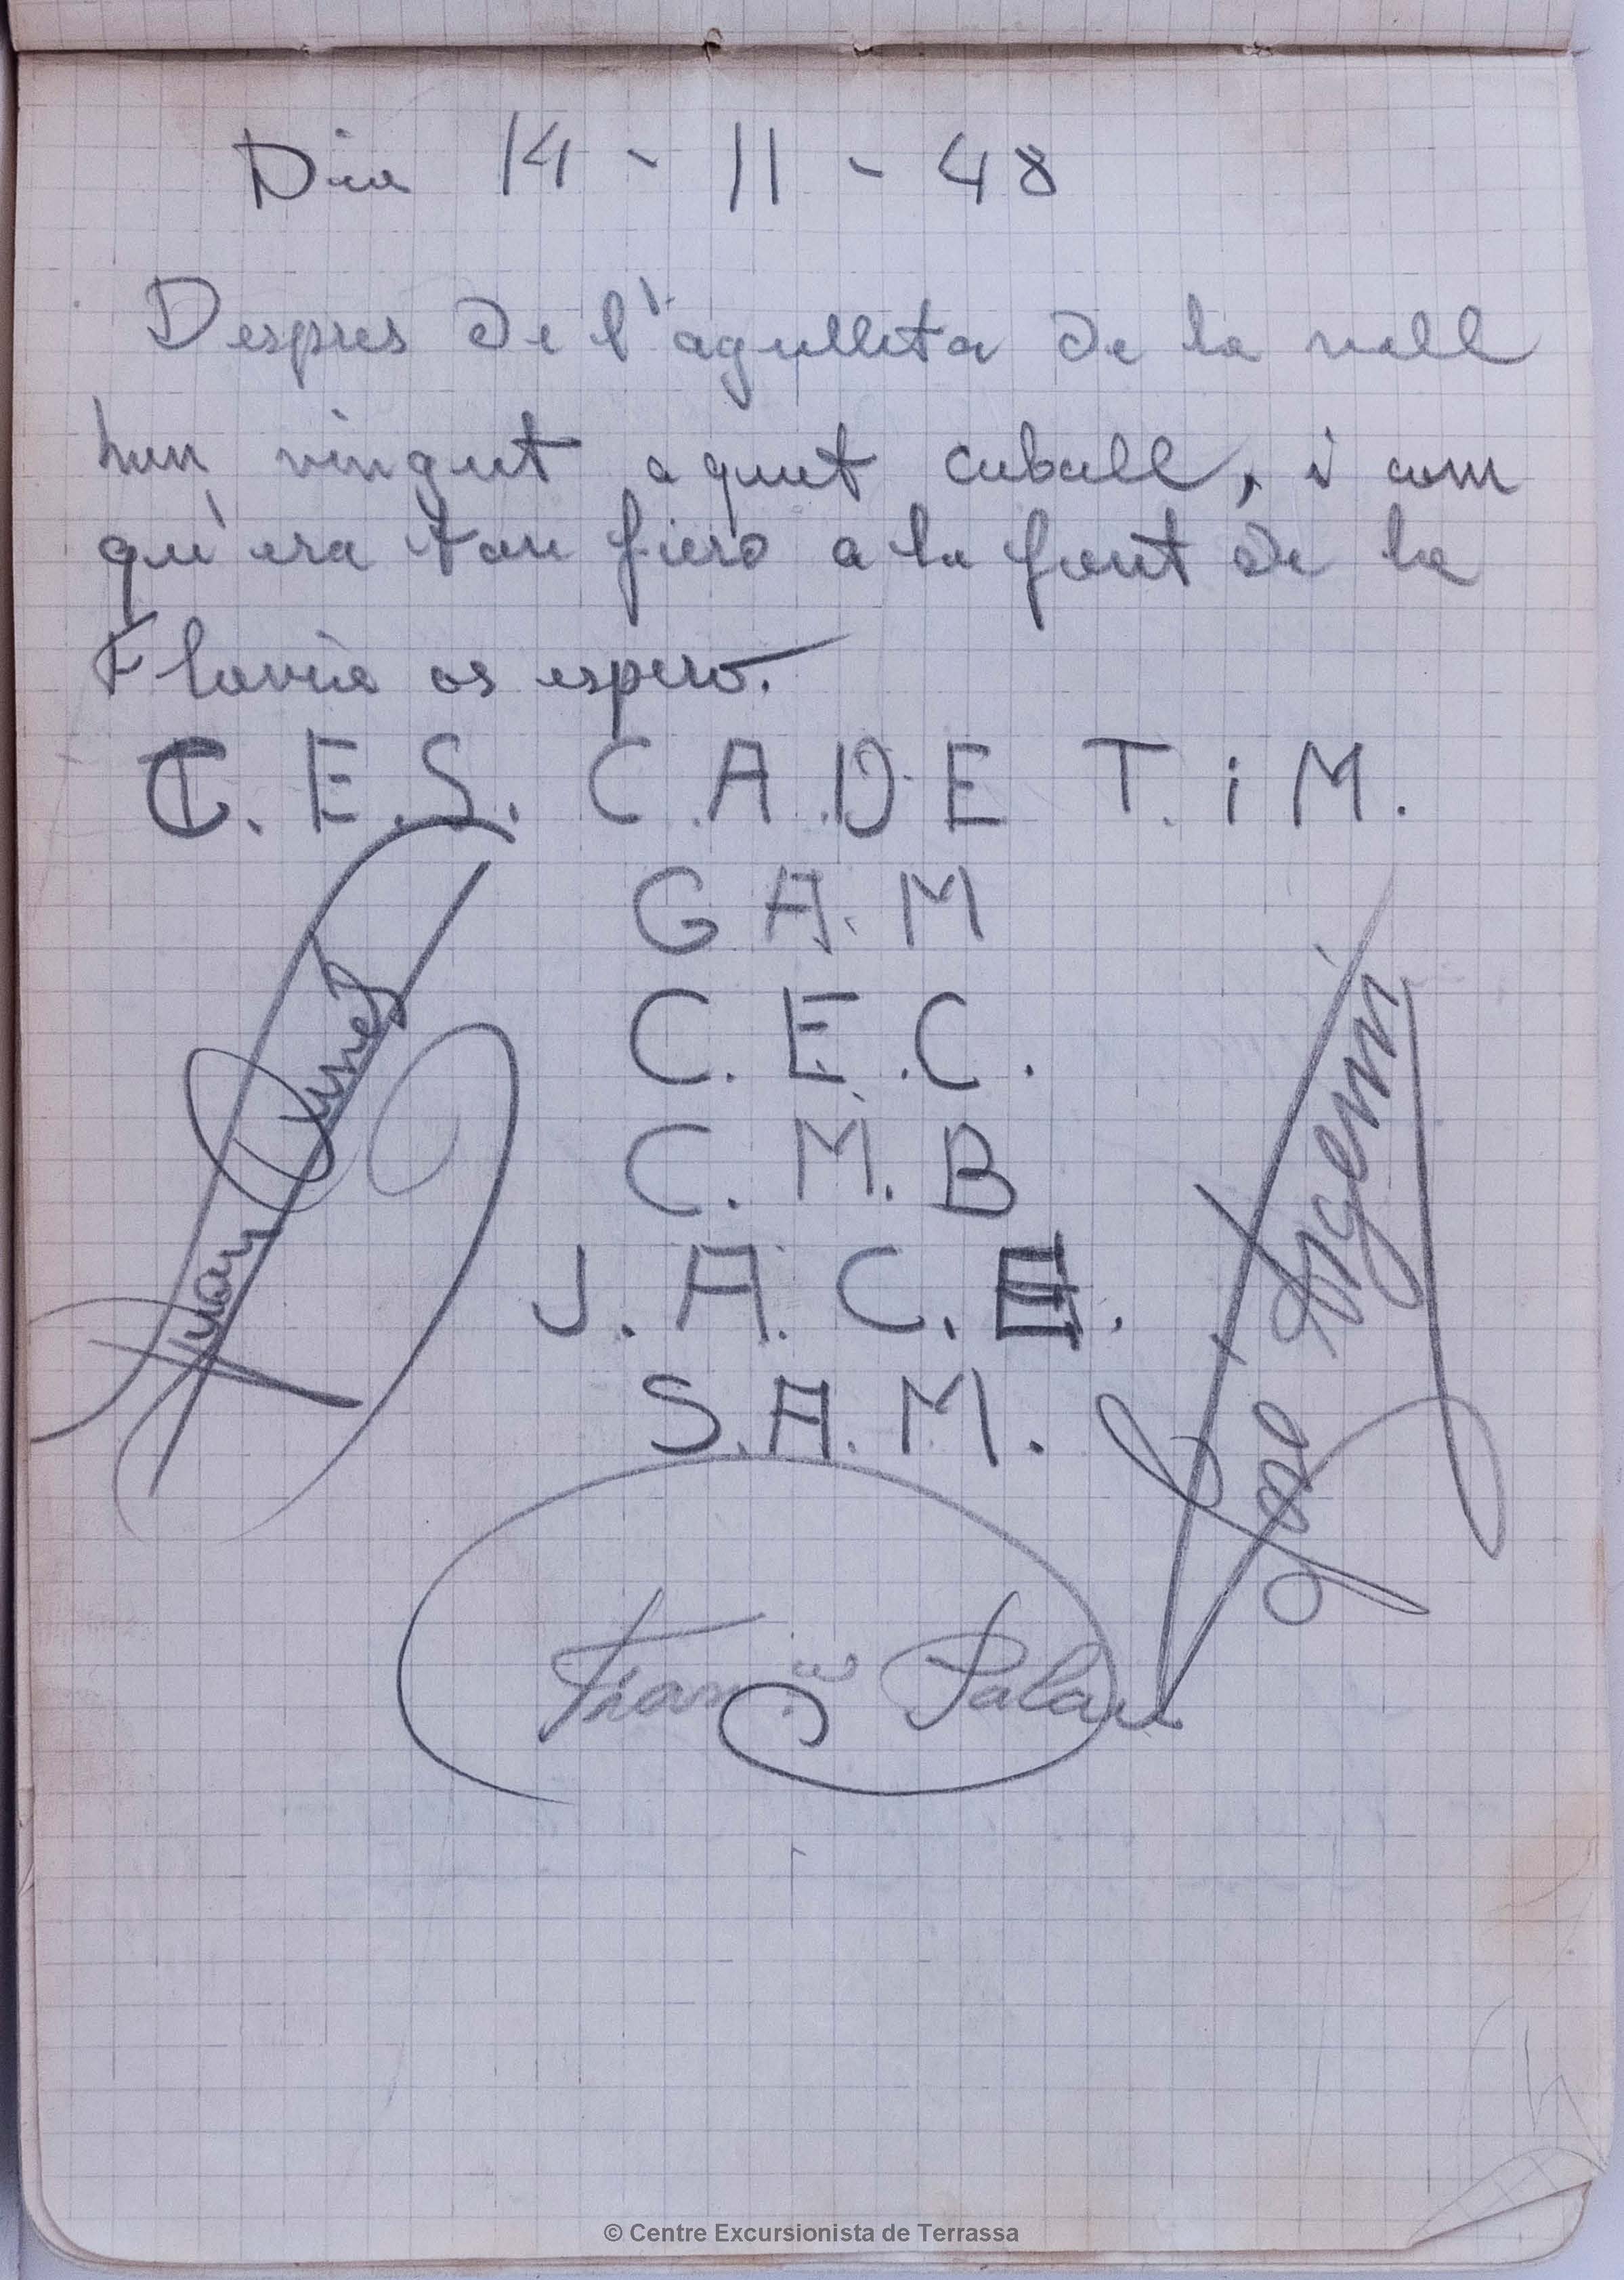 Dia 14 - 11 - 48
Despres de l'agulleta de la vall
hem vingut aquet caball, i com
qu'era tan fiero a la font de la
Flavia os espero.
C. E. S. C. A. D E T. i M.
G A. M
C. E. C.
C. M. B
J. A. C. E.
S. A. M.
Juan
José Argemí
Palau
© Centre Excursionista de Terrassa